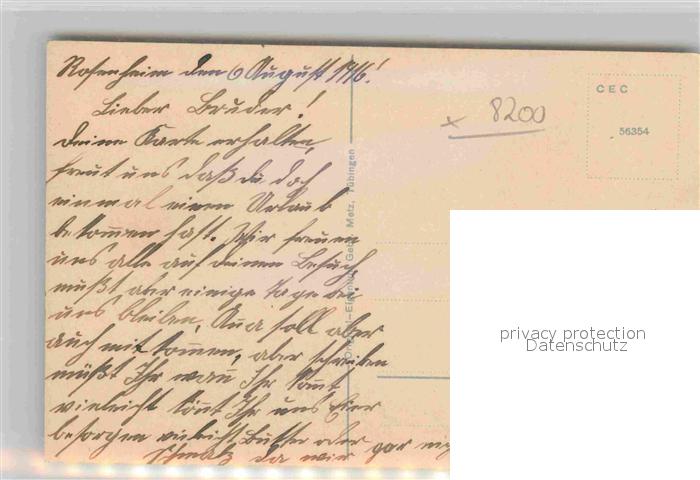 Rosenheim den 6 August 1916!
Lieber Bruder!
Deine Karte erhalten,
freut uns daß du doch
einmal einen Urlaub
bekommen hast. Wir freuen
uns alle auf deinen Besuch,
mußt aber einige Tage bei
uns bleiben, Anna soll aber
auch mit kommen, aber schreiben
müßt Ihr wann Ihr kommt
vieleicht könnt Ihr uns Eier
besorgen vieleicht Butter oder
Schmalz da wir gar
x 8200
CEC
56354
Gebr. Metz, Tübingen
privacy protection
Datenschutz